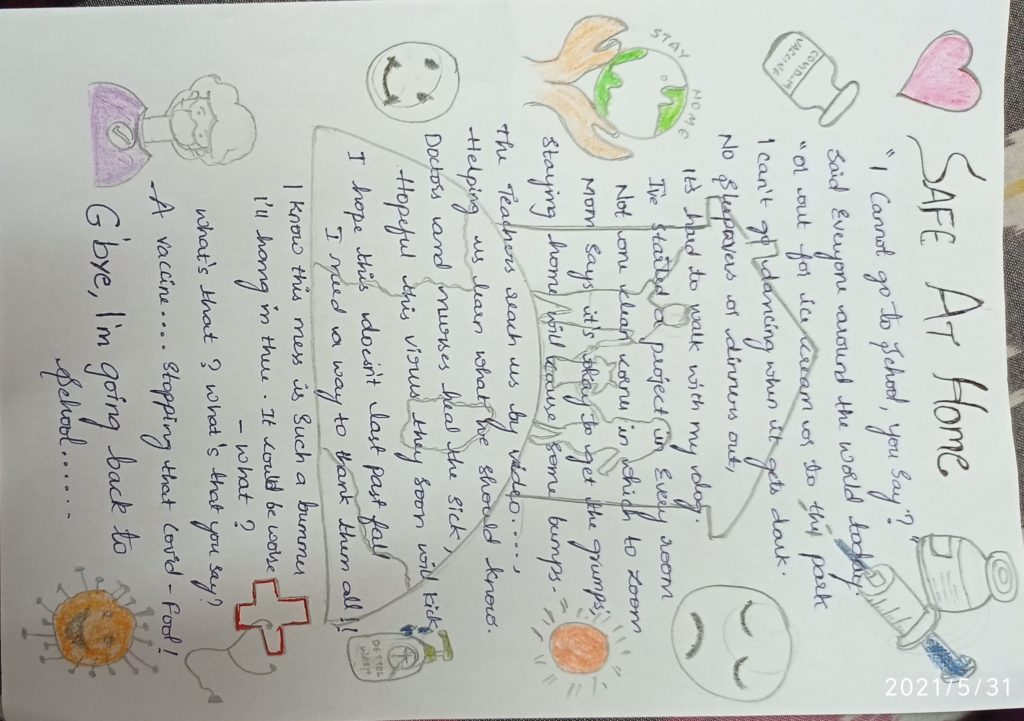 SAFE AT HOME
"I Cannot go to School, you say?
Said Everyone around the world today.
"Or out for ice cream or to the park
I can't go dancing when it gets dark.
No Sleepovers or dinners out,
It's hard to walk with my dog.
I've started a project in Every room
Not one clean corner in which to zoom
Mom says it's okay to get the grumps,
Staying home will cause some bumps.
The Teachers reach us by video....,
Helping us learn what we should know.
Doctors and nurses heal the sick,
Hopeful this virus they soon will kick
I hope this doesn't last past fall
I need a way to thank them all!!
I know this mess is such a bummer
I'll hang in there. It could be worse
- What?
What's that? What's that you say?
-A vaccine.... Stopping that Covid-Fool!
G'bye, I'm going back to
School......
COVID-19
VACCINE
STAY HOME
DETTOL
2021/5/31